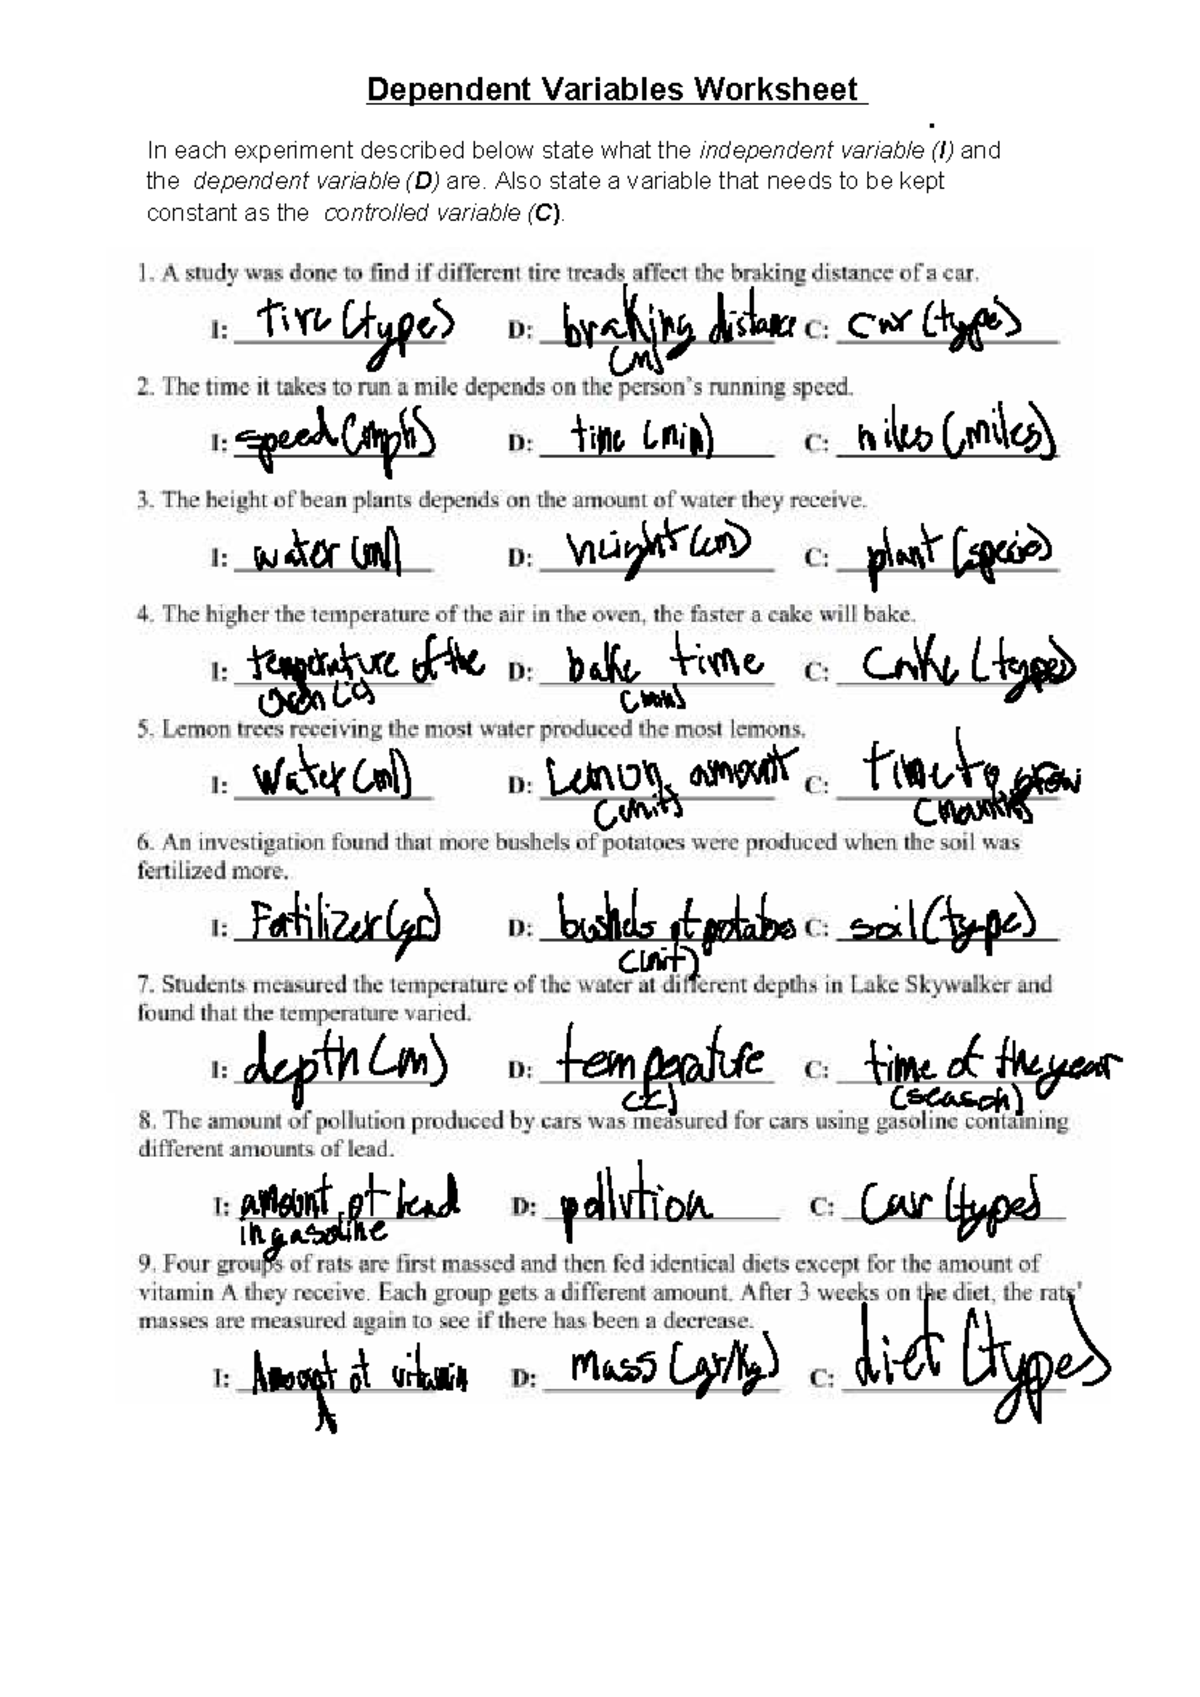 Dependent Variables Worksheet
In each experiment described below state what the independent variable (I) and
the dependent variable (D) are. Also state a variable that needs to be kept
constant as the controlled variable (C).
1. A study was done to find if different tire treads affect the braking distance of a car.
I: tire (type) D: braking distance C: car (type)
(m)
2. The time it takes to run a mile depends on the person's running speed.
I: speed (mph) D: time (min) C: miles (miles)
3. The height of bean plants depends on the amount of water they receive.
I: water (ml) D: height (cm) C: plant (species)
4. The higher the temperature of the air in the oven, the faster a cake will bake.
I: temperature of the D: bake time C: cake (types)
oven (c) (min)
5. Lemon trees receiving the most water produced the most lemons.
I: water (ml) D: Lemon amount C: time to grow
(units) (months)
6. An investigation found that more bushels of potatoes were produced when the soil was
fertilized more.
I: Fertilizer (gr) D: bushels of potatoes C: soil (type)
(unit)
7. Students measured the temperature of the water at different depths in Lake Skywalker and
found that the temperature varied.
I: depth (m) D: temperature C: time of the year
(season)
8. The amount of pollution produced by cars was measured for cars using gasoline containing
different amounts of lead.
I: amount of lead D: pollution C: car (types)
in gasoline
9. Four groups of rats are first massed and then fed identical diets except for the amount of
vitamin A they receive. Each group gets a different amount. After 3 weeks on the diet, the rats'
masses are measured again to see if there has been a decrease.
I: Amount of vitamin D: mass (gr/kg) C: diet (types)
A